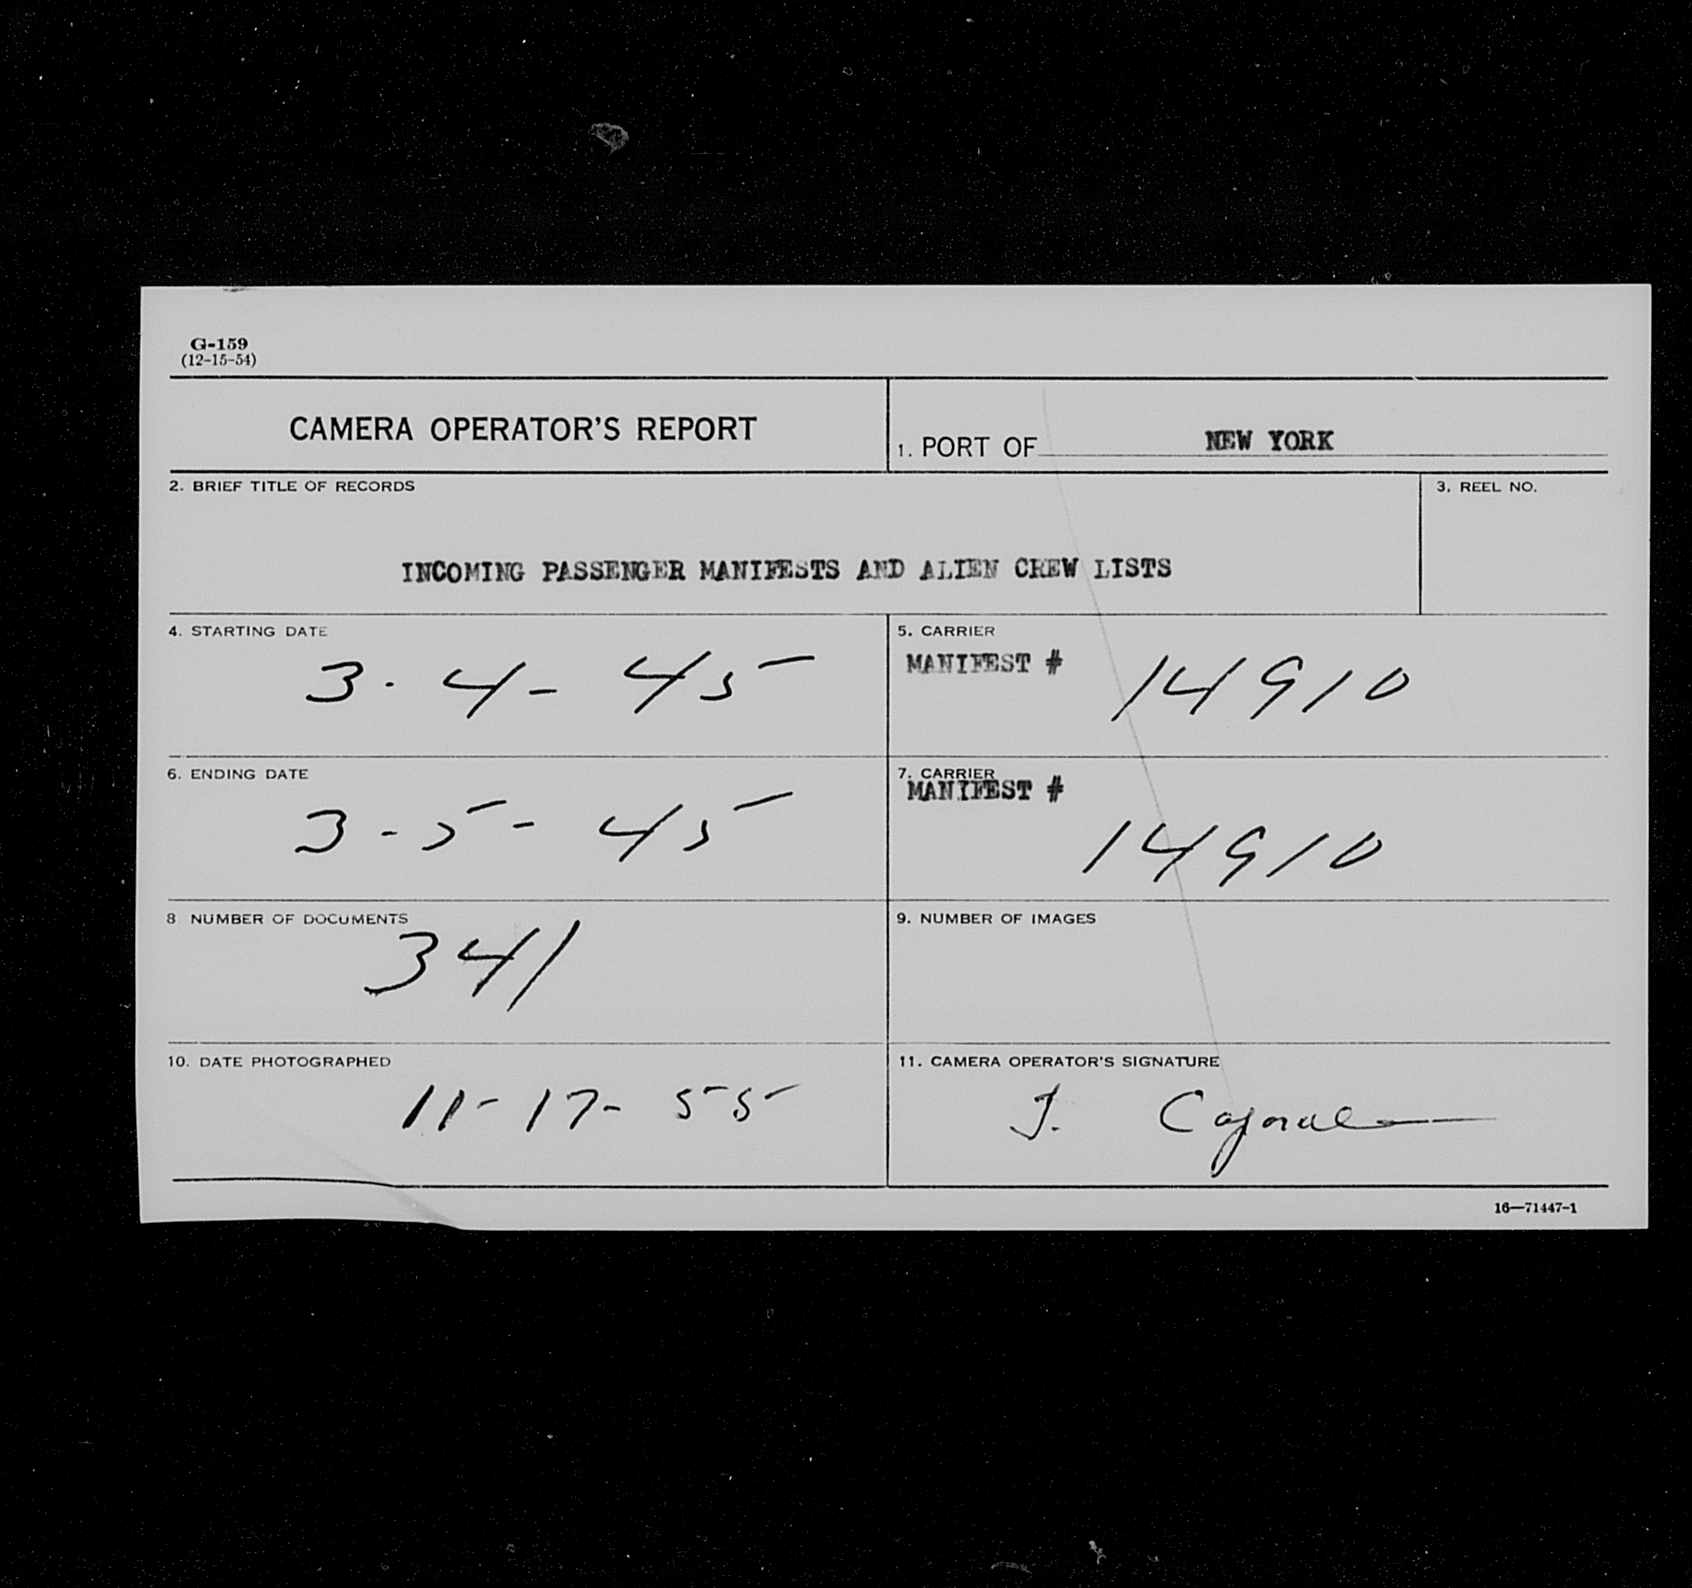 G-159
(12-15-54)
CAMERA OPERATOR'S REPORT
1. PORT OF NEW YORK
2. BRIEF TITLE OF RECORDS
3. REEL NO.
INCOMING PASSENGER MANIFESTS AND ALIEN CREW LISTS
4. STARTING DATE
3-4-45
5. CARRIER
MANIFEST # 14910
6. ENDING DATE
3-5-45
7. CARRIER
MANIFEST #
14910
8 NUMBER OF DOCUMENTS
341
9. NUMBER OF IMAGES
10. DATE PHOTOGRAPHED
11-17-55
11. CAMERA OPERATOR'S SIGNATURE
J.
16—71447-1